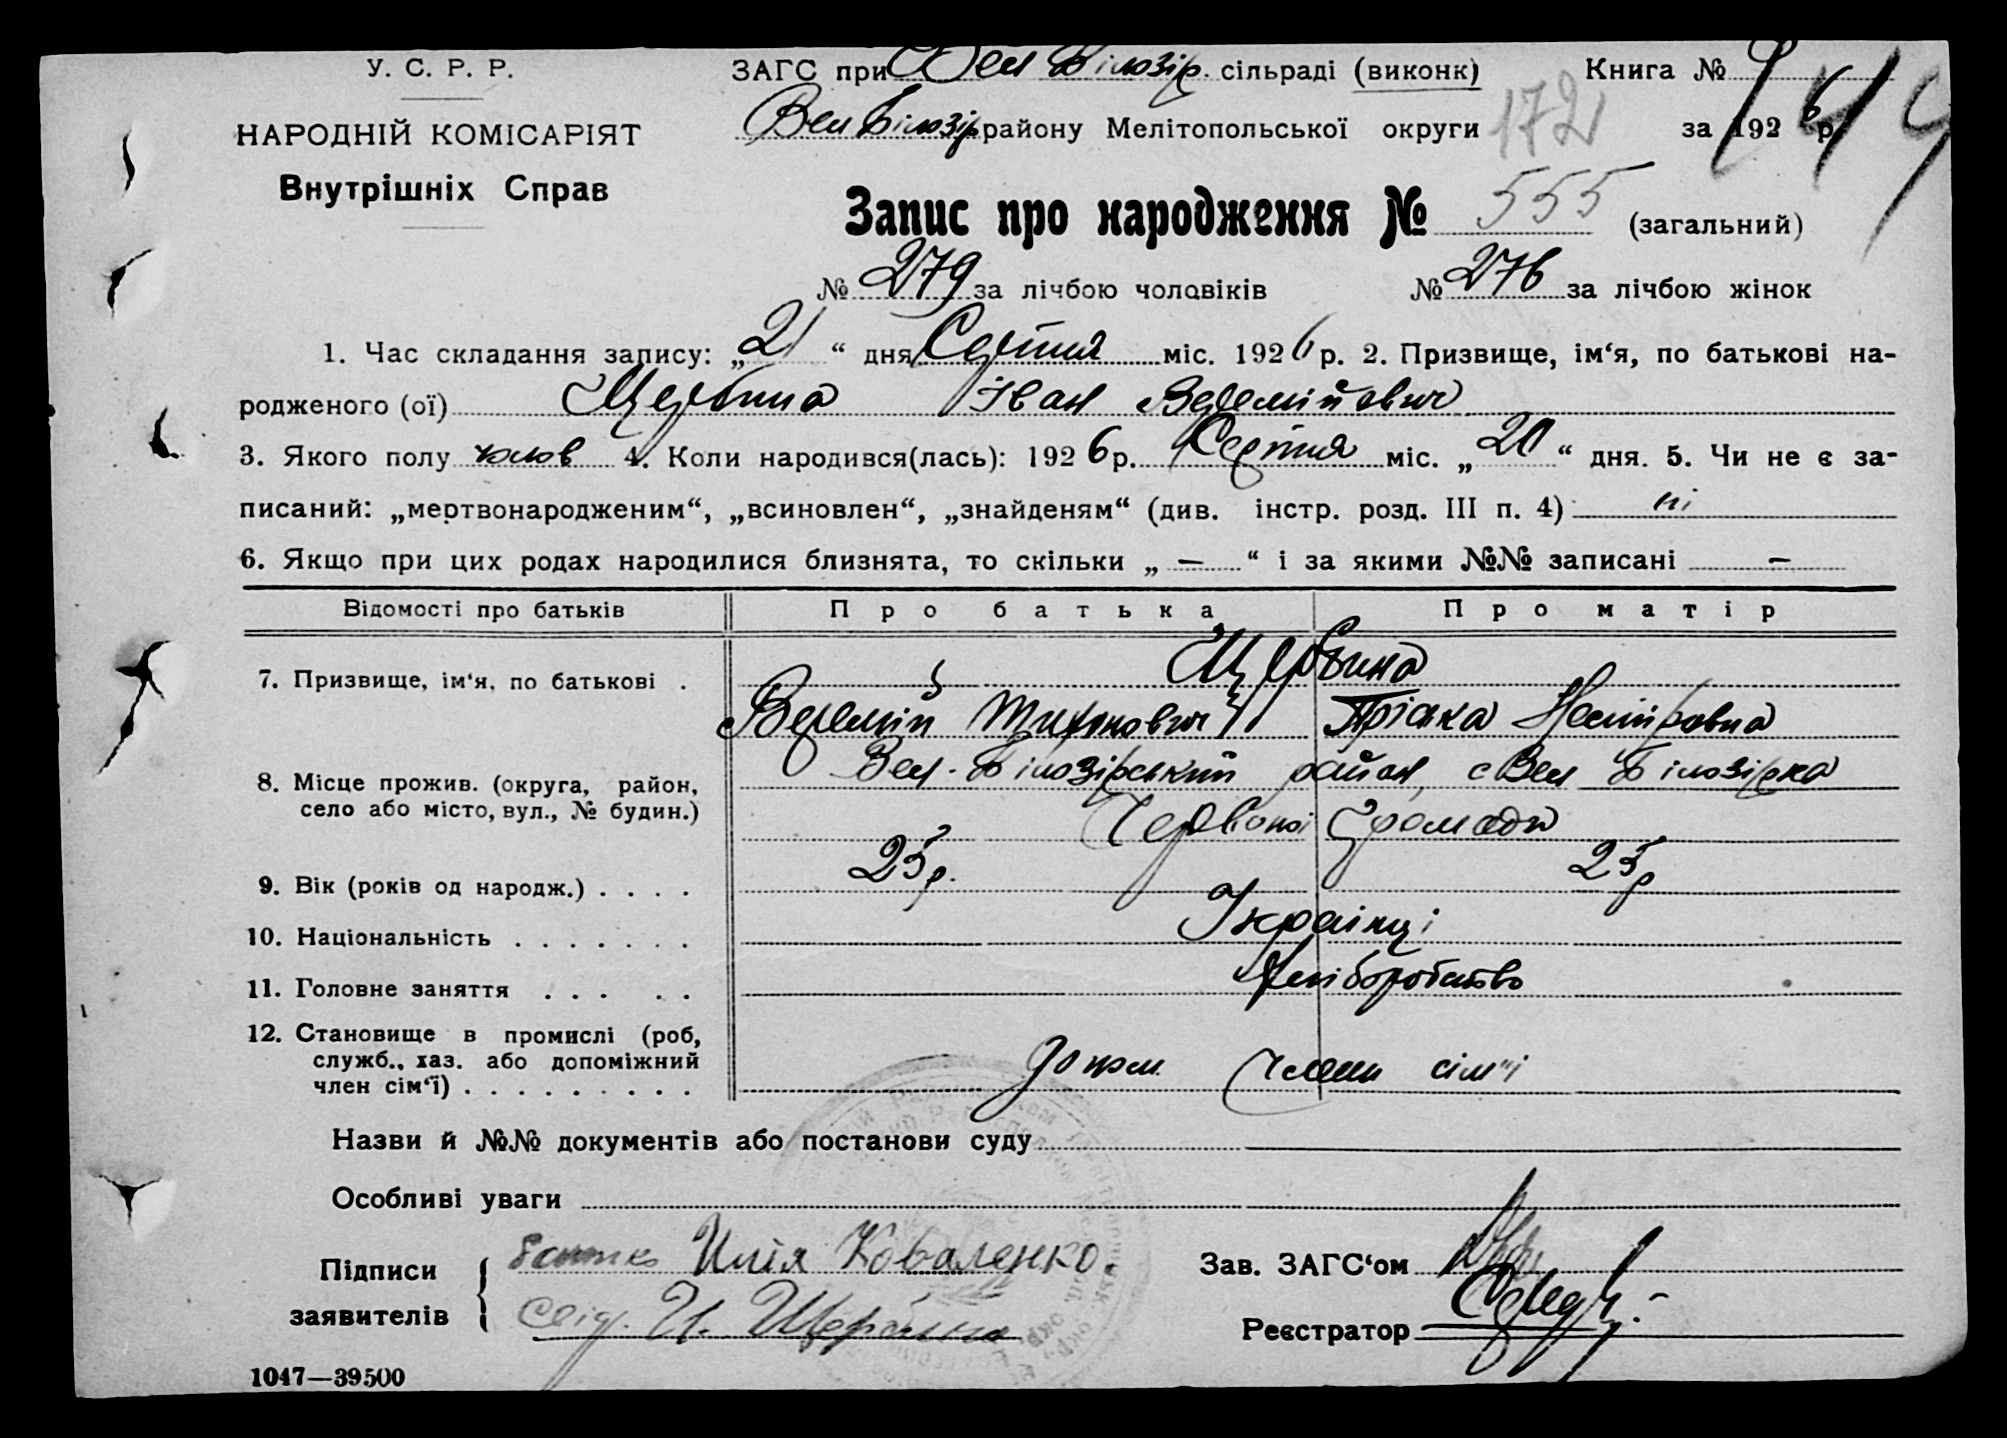 У. С. Р. Р.
НАРОДНІЙ КОМІСАРІЯТ
Внутрішніх Справ
ЗАГС при Вел Білозір. сільраді (виконк) Книга №
172
Вел Білозір району Мелітопольської округи за 1926 р.
Запис про народження № 555 (загальний)
№ 279 за лічбою чоловіків № 276 за лічбою жінок
1. Час складання запису: „21“ дня Серпня міс. 1926 р. 2. Призвище, ім‘я, по батькові на-
родженого (ої) Щербина Іван Веремійович
3. Якого полу чолов 4. Коли народився(лась): 1926 р. Серпня міс. „20“ дня. 5. Чи не є за-
писаний: „мертвонародженим“, „всиновлен“, „знайденям“ (див. інстр. розд. III п. 4) ні
6. Якщо при цих родах народилися близнята, то скільки „ — “ і за якими №№ записані —
Відомості про батьків Про батька Про матір
7. Призвище, ім‘я, по батькові . Щербина
Веремій Тихонович
8. Місце прожив. (округа, район, село або місто, вул., № будин.) Вел-Білозірський район, с Вел Білозірка
Червоної Громади
9. Вік (років од народж.) . . . . 25 р. 25 р
10. Національність . . . . . . . Українці
11. Головне заняття . . . . . Хліборобство
12. Становище в промислі (роб, служб., хаз. або допоміжний член сім‘ї) . . . . . . . . . члени сім"ї
Назви й №№ документів або постанови суду
Особливі уваги
Підписи заявителів { Ілія Коваленко.
Свід. И. Щербина
Зав. ЗАГС‘ом
Реєстратор
1047—39500